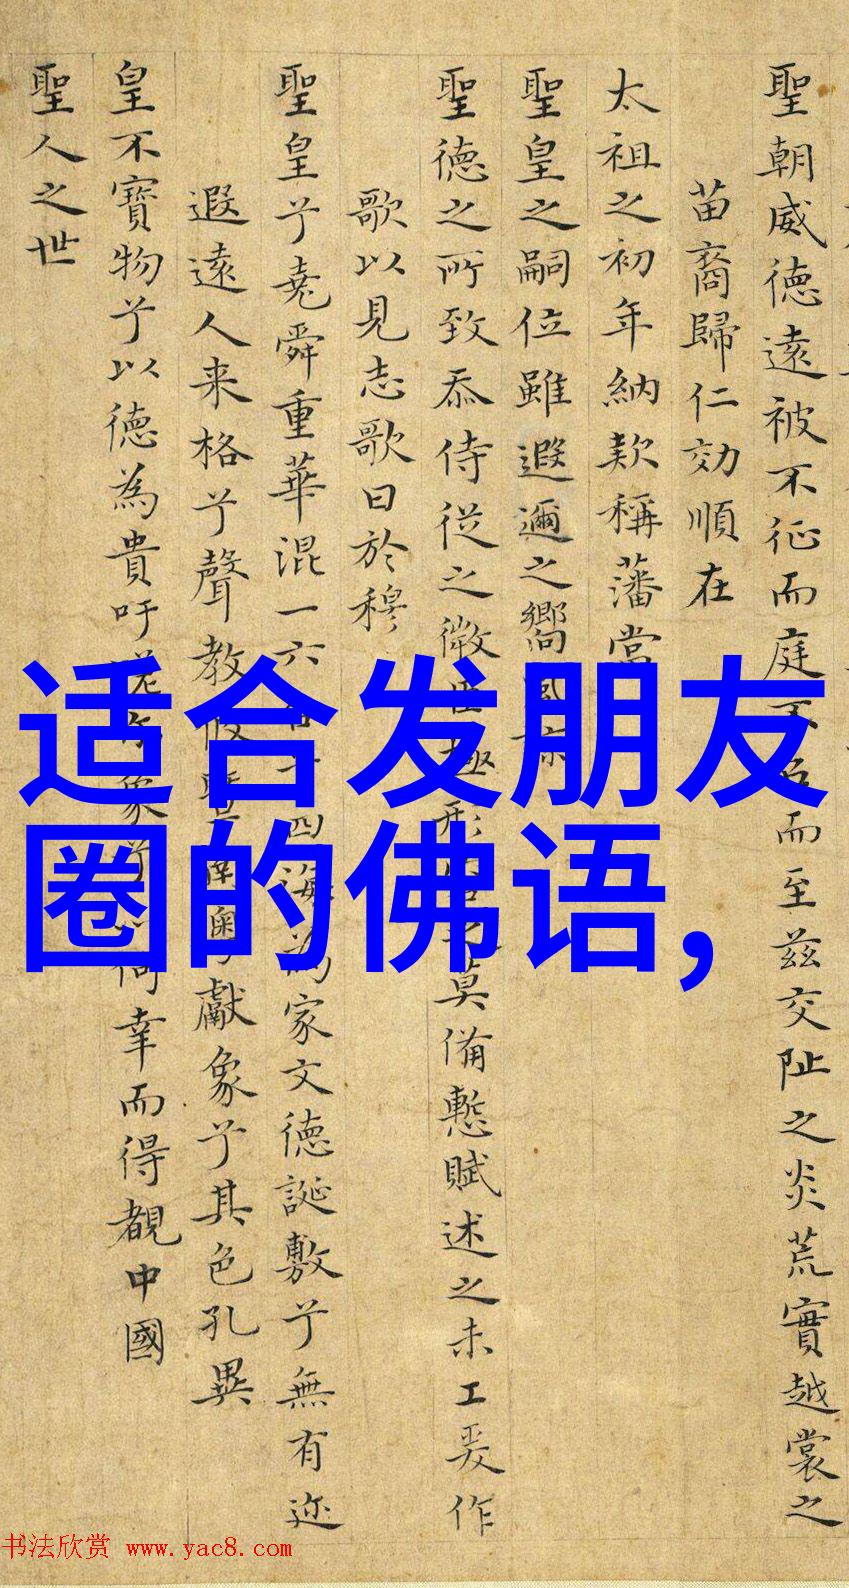 聖朝威德遠被不征而庭不召而至茲交阯之炎荒實越裳之
苗裔歸仁効順在
太祖之初年納款稱藩當
聖皇之嗣位雖遐邇之嚮風亦
聖德之所致忝侍從之微臣極形容之莫備慙賦述之未工爰作
歌以見志歌曰於穆
聖皇兮堯舜重華混一六合兮四海為家文德誕敷兮無有迩
遐遠人来格兮聲教攸暨南粤獻象兮其色孔異
皇不寶物兮以德為貴吁嗟象兮何幸而得覩中國
聖人之世
适合发朋友
圈的佛语,
书法欣赏 www.yac8.com